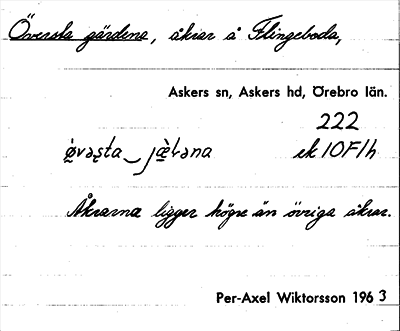 Översta gärdena, åkrar å Flingeboda,
Askers sn, Askers hd, Örebro län.
222
ek 10F1h
Åkrarna ligger högre än övriga åkrar.
Per-Axel Wiktorsson 1963